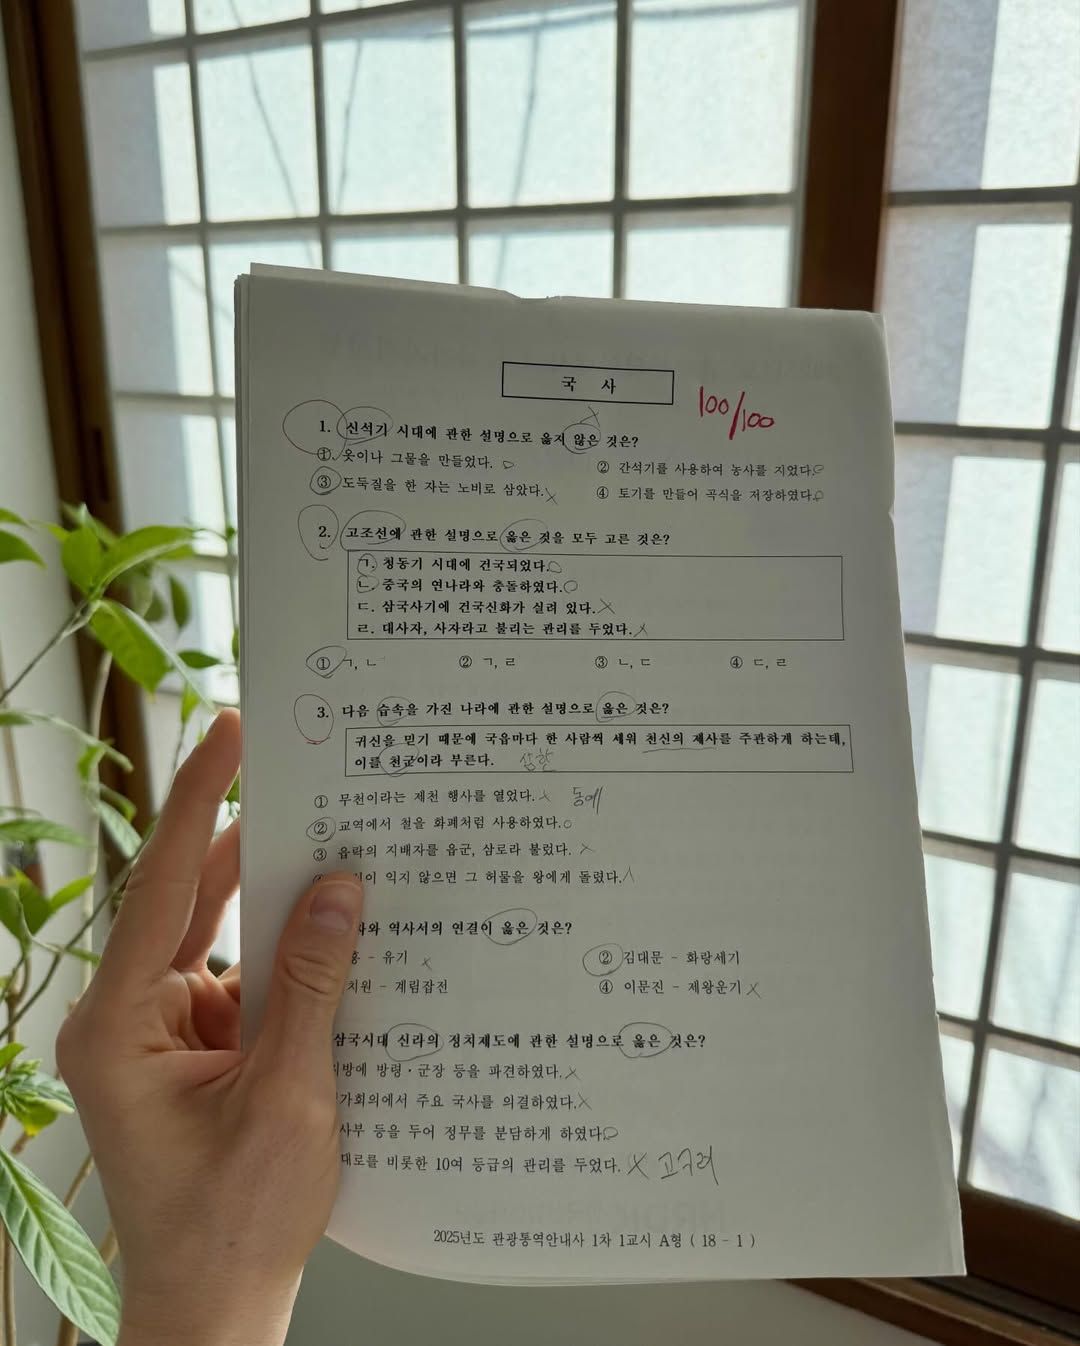 국 사
100/100
1. 신석기 시대에 관한 설명으로 옳지 않은 것은?
① 옷이나 그물을 만들었다.
② 간석기를 사용하여 농사를 지었다.
③ 도둑질을 한 자는 노비로 삼았다.
④ 토기를 만들어 곡식을 저장하였다.
2. 고조선에 관한 설명으로 옳은 것을 모두 고른 것은?
ㄱ. 청동기 시대에 건국되었다.
ㄴ. 중국의 연나라와 충돌하였다.
ㄷ. 삼국사기에 건국신화가 실려 있다.
ㄹ. 대사자, 사자라고 불리는 관리를 두었다.
① ㄱ, ㄴ ② ㄱ, ㄹ ③ ㄴ, ㄷ ④ ㄷ, ㄹ
3. 다음 습속을 가진 나라에 관한 설명으로 옳은 것은?
귀신을 믿기 때문에 국읍마다 한 사람씩 세워 천신의 제사를 주관하게 하는데,
이를 천군이라 부른다. 삼한
① 무천이라는 제천 행사를 열었다. 동예
② 교역에서 철을 화폐처럼 사용하였다.
③ 읍락의 지배자를 읍군, 삼로라 불렀다.
이 익지 않으면 그 허물을 왕에게 돌렸다.
자와 역사서의 연결이 옳은 것은?
흥 - 유기
② 김대문 - 화랑세기
치원 - 계림잡전
④ 이문진 - 제왕운기
삼국시대 신라의 정치제도에 관한 설명으로 옳은 것은?
지방에 방령·군장 등을 파견하였다.
가회의에서 주요 국사를 의결하였다.
사부 등을 두어 정무를 분담하게 하였다.
대로를 비롯한 10여 등급의 관리를 두었다. 고구려
2025년도 관광통역안내사 1차 1교시 A형 ( 18 - 1 )